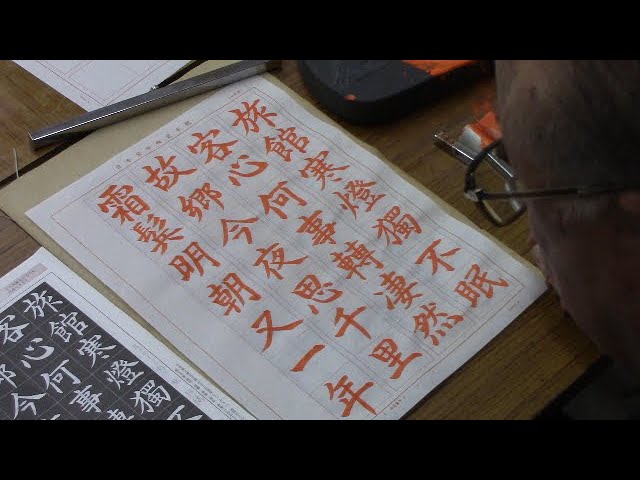 旅館寒燈獨不眠
客心何事轉淒然
故鄉今夜思千里
霜鬢明朝又一年
旅館寒燈獨不
客心何事
鄉今